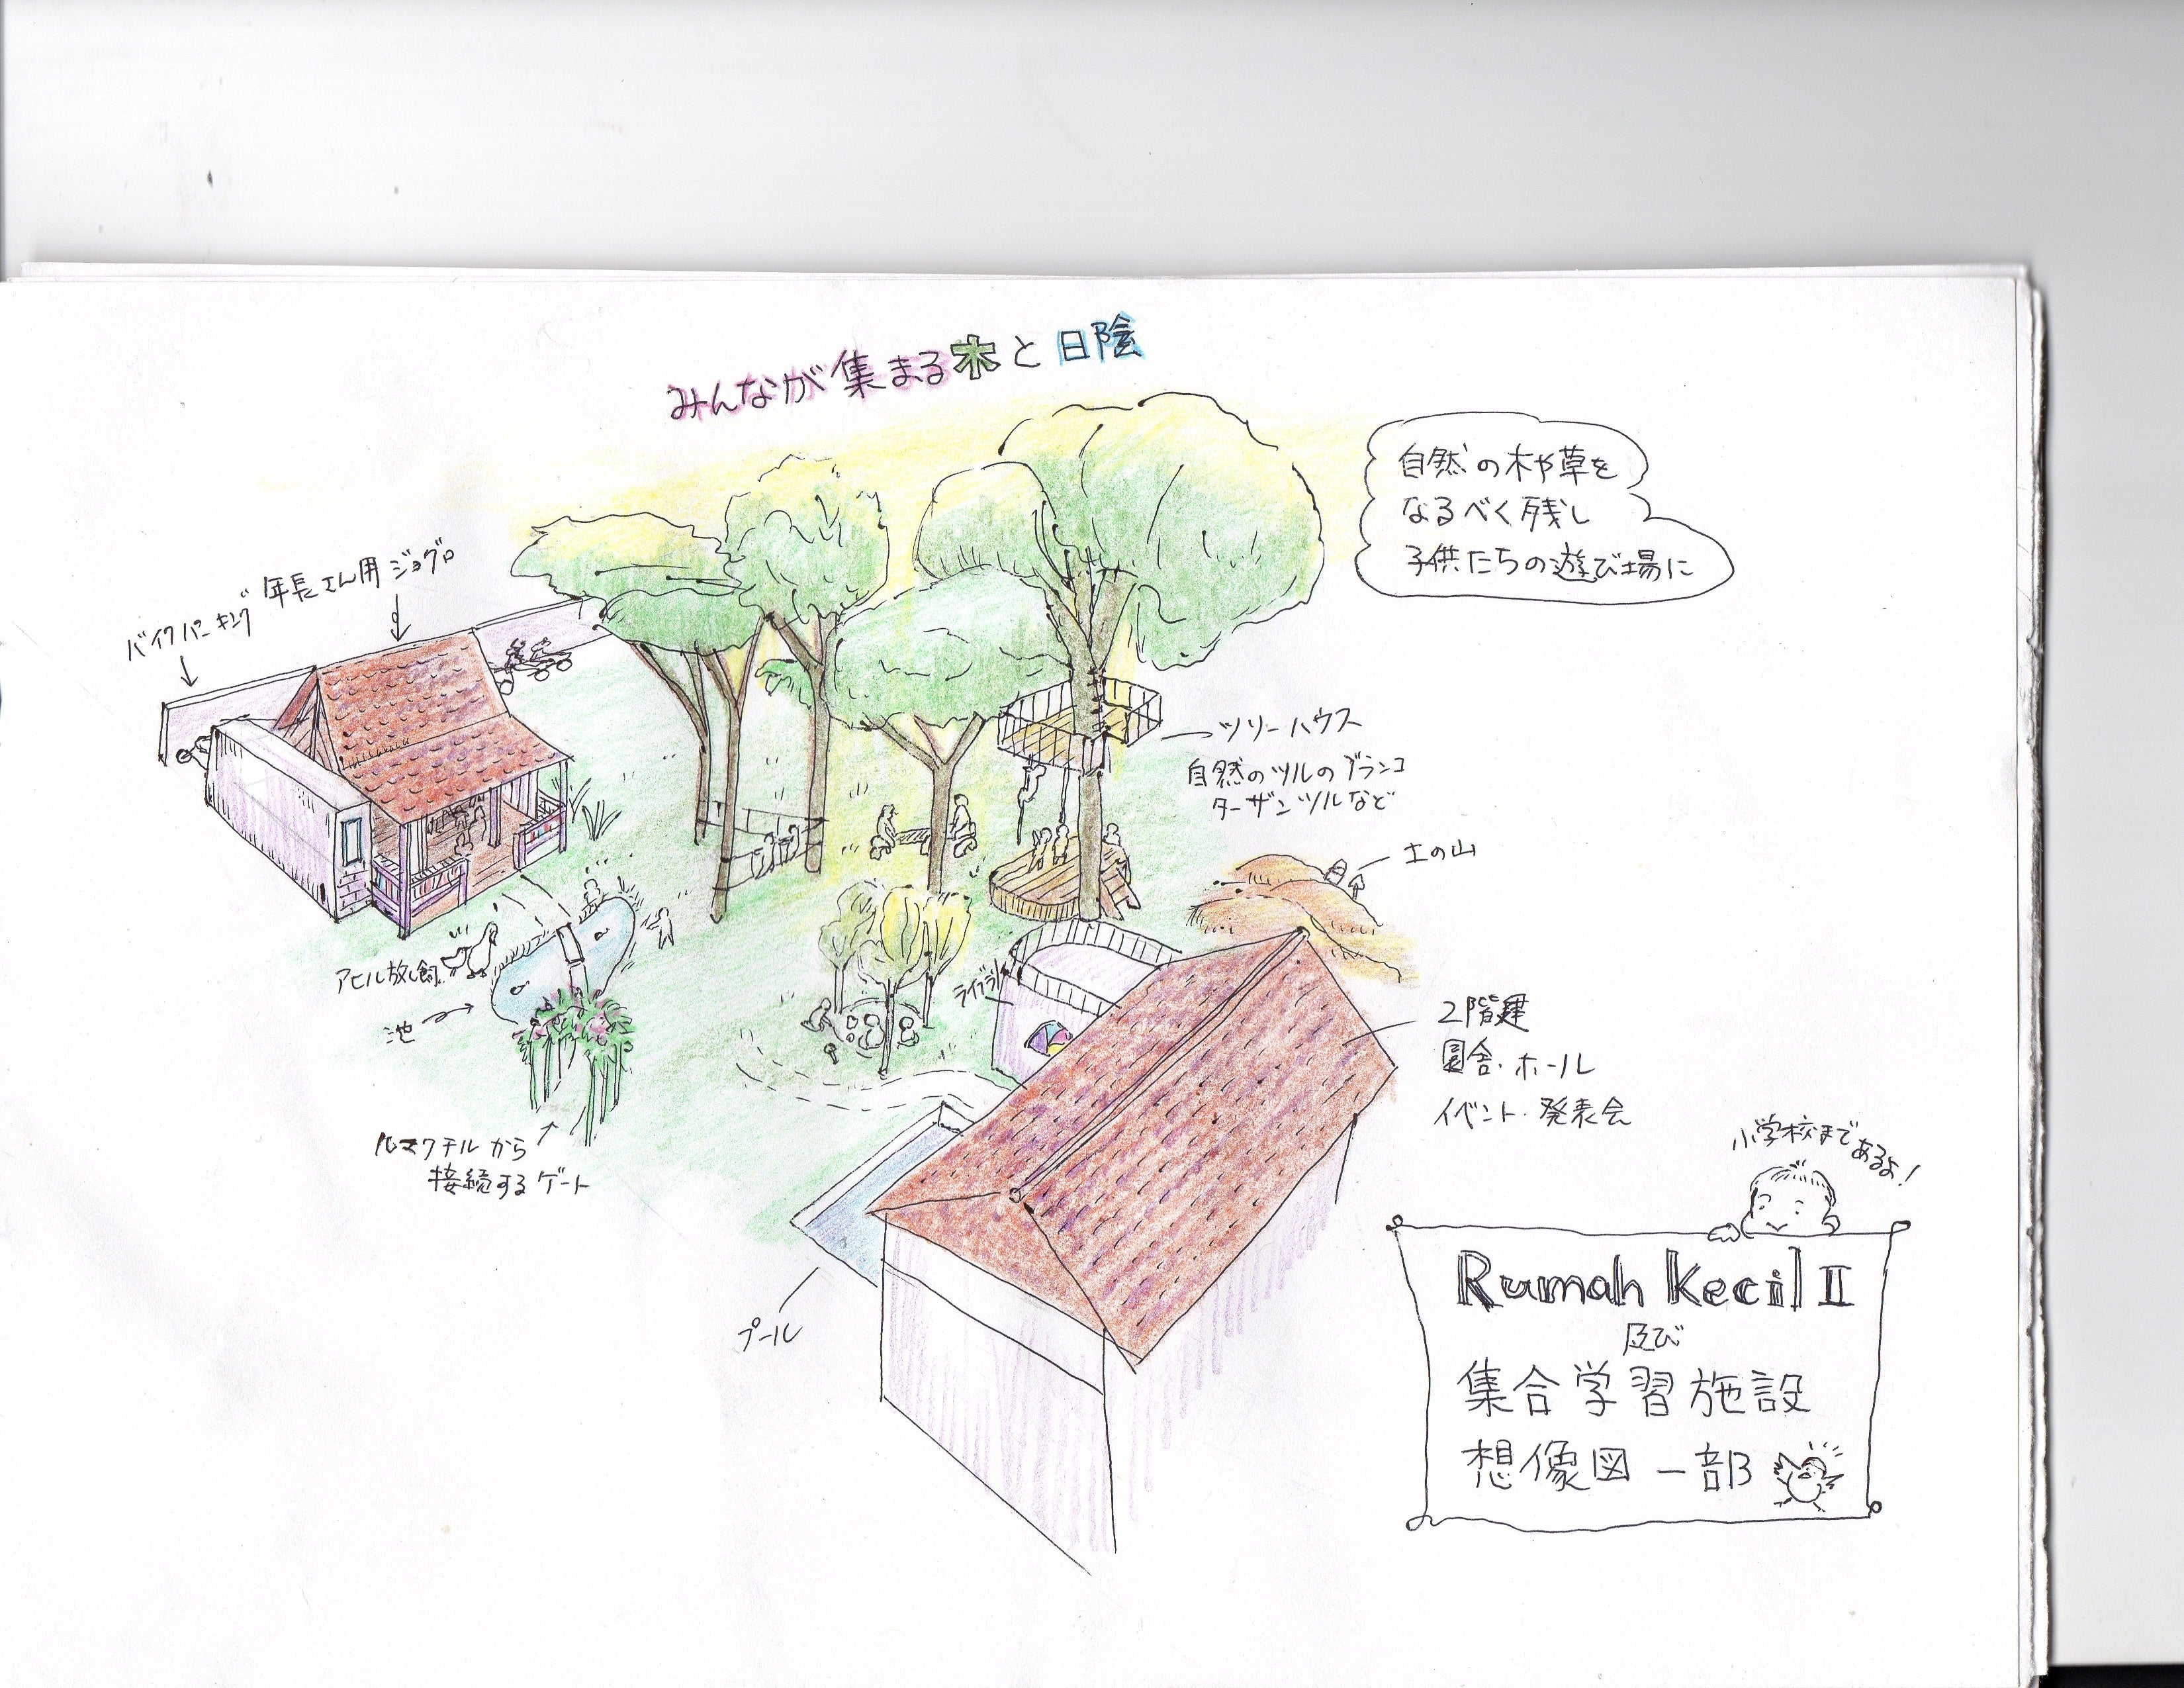 みんなが集まる木と日陰
自然の木や草を
なるべく残し
子供たちの遊び場に
バイクパーキング
年長さん用ジョグロ
ツリーハウス
自然のツルのブランコ
ターザンツルなど
土の山
アヒル放し飼
池
ライブラリ
2階建
園舎・ホール
イベント・発表会
ルマクチルから
接続するゲート
プール
小学校まであるよ!
Rumah Kecil II
及び
集合学習施設
想像図 一部